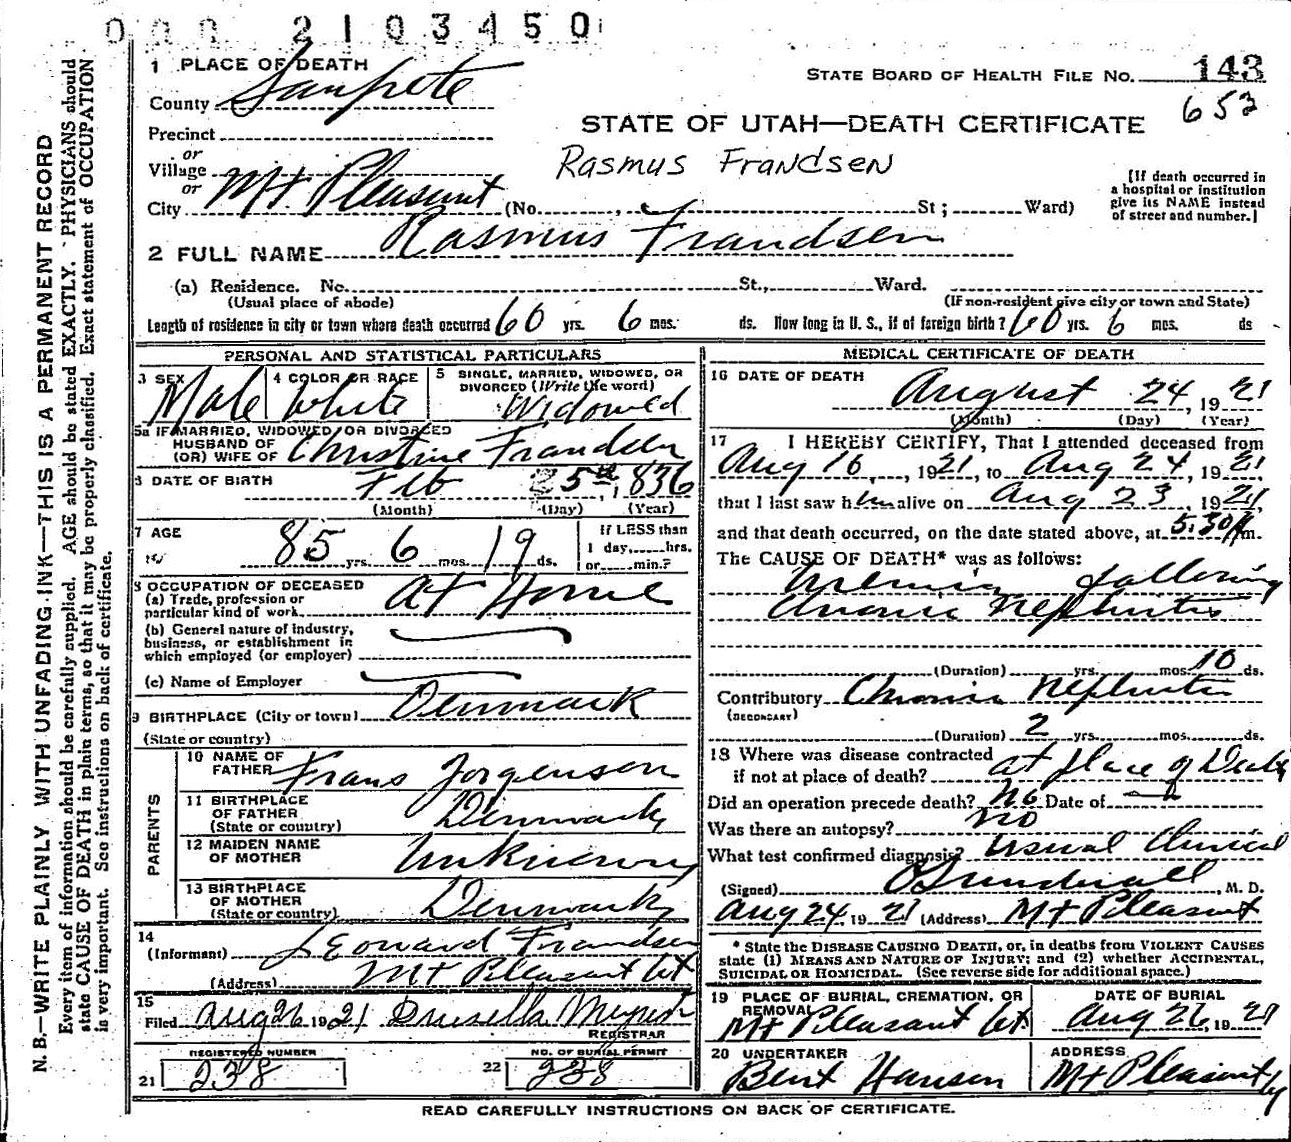 000 2103450
1 PLACE OF DEATH
STATE BOARD OF HEALTH FILE No. 143
653
County Sanpete
STATE OF UTAH—DEATH CERTIFICATE
Precinct
or
Rasmus Frandsen
Village
or
City Mt. Pleasant (No. , St; Ward)
[If death occurred in
a hospital or institution
give its NAME instead
of street and number.]
2 FULL NAME Rasmus Frandsen
(a) Residence. No. St., Ward.
(Usual place of abode) (If non-resident give city or town and State)
Length of residence in city or town where death occurred 60 yrs. 6 mos. ds. How long in U. S., if of foreign birth? 60 yrs. 6 mos. ds
PERSONAL AND STATISTICAL PARTICULARS
3 SEX Male
4 COLOR OR RACE White
5 SINGLE, MARRIED, WIDOWED, OR
DIVORCED (Write the word)
Widowed
5a IF MARRIED, WIDOWED, OR DIVORCED
HUSBAND OF
(OR) WIFE OF Christine Frandsen
6 DATE OF BIRTH Feb 25th, 1836
(Month) (Day) (Year)
7 AGE 85 yrs. 6 mos. 19 ds.
If LESS than
1 day,......hrs.
or......min.?
8 OCCUPATION OF DECEASED
(a) Trade, profession or
particular kind of work At Home
(b) General nature of industry,
business, or establishment in
which employed (or employer)
(c) Name of Employer
9 BIRTHPLACE (City or town) Denmark
(State or country)
PARENTS
10 NAME OF
FATHER Frans Jorgenson
11 BIRTHPLACE
OF FATHER
(State or country) Denmark
12 MAIDEN NAME
OF MOTHER Unknown
13 BIRTHPLACE
OF MOTHER
(State or country) Denmark
14
(Informant) Leonard Frandsen
(Address) Mt Pleasant Ut
15
Filed Aug 26 1921 Drusilla
REGISTRAR
REGISTERED NUMBER
21 238
NO. OF BURIAL PERMIT
22 238
MEDICAL CERTIFICATE OF DEATH
16 DATE OF DEATH
August 24, 1921
(Month) (Day) (Year)
17 I HEREBY CERTIFY, That I attended deceased from
Aug 16, 1921, to Aug 24, 1921,
that I last saw him alive on Aug 23 1921,
and that death occurred, on the date stated above, at 5.30 m.
The CAUSE OF DEATH* was as follows:
Uremia following
Chronic Nephritis
(Duration) yrs. mos. 10 ds.
Contributory Chronic Nephritis
(SECONDARY)
(Duration) 2 yrs. mos. ds.
18 Where was disease contracted
if not at place of death? at place of Death
Did an operation precede death? No Date of —
Was there an autopsy? No
What test confirmed diagnosis? Usual Clinical
(Signed) O Sundwall, M. D.
Aug 24, 1921 (Address) Mt Pleasant
* State the DISEASE CAUSING DEATH, or, in deaths from VIOLENT CAUSES
state (1) MEANS AND NATURE OF INJURY; and (2) whether ACCIDENTAL,
SUICIDAL OR HOMICIDAL. (See reverse side for additional space.)
19 PLACE OF BURIAL, CREMATION, OR
REMOVAL
Mt Pleasant Ut
DATE OF BURIAL
Aug 26, 1921
20 UNDERTAKER
Bent Hansen
ADDRESS
Mt Pleasant
READ CAREFULLY INSTRUCTIONS ON BACK OF CERTIFICATE.
N. B.—WRITE PLAINLY WITH UNFADING INK—THIS IS A PERMANENT RECORD
Every item of information should be carefully supplied. AGE should be stated EXACTLY. PHYSICIANS should
state CAUSE OF DEATH in plain terms, so that it may be properly classified. Exact statement of OCCUPATION
is very important. See instructions on back of certificate.